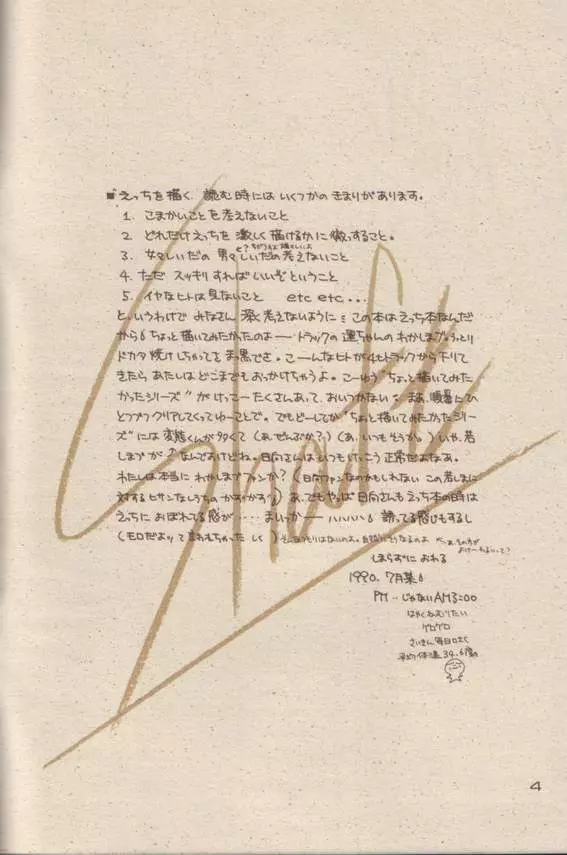 ■えっちを描く、読む時には いくつかの きまりがあります。
1. こまかいことを考えないこと
2. どれだけえっちを 激しく描けるかに徹すること。
3. 女々しいだの 男々しいだの考えないこと
4. ただ スッキリすればいいぞということ
5. イヤなヒトは見ないこと etc etc...
と、いうわけで みなさん 深く考えないように この本はえっち本なんだ
から ちょっと描いてみたかったのよ――トラックの運ちゃんのわかしまづ
ドカタ焼けしちゃってま っ黒でさ。こーんなヒトが4tトラックから下りて
きたら あたしはどこまでもおっかけちゃうよ。こーゆう"ちょっと描いてみた
かったシリーズ"が けっこーたくさんあって、おいつかない まあ、順番にひ
とつづつクリアしてくってゆーことで。でもどーしてか"ちょっと描いてみたかったシリー
ズ"には変態くんが多くて（あ、ぜんぶか？）（あ、いつもそうか。）いや、若
しまづが なんですけどね。日向さんはいつもけっこう正常だよなあ。
わたしは本当に わかしまづファンか？（日向ファンなのかもしれない この若しまに
対する ヒサンな あ、でもやっぱ日向さんもえっち本の時は
えちに おぼれてる感が‥‥‥まいっかーハハハハ 読してる感じもするし
（モロだよって言われちゃった しく）
しまらずに おわる
1990. 7月某
PM‥じゃないAM3:00
はやくねむりたい
ゲロゲロ
さいきん毎日
平均体温34.6度の
Shoft
4